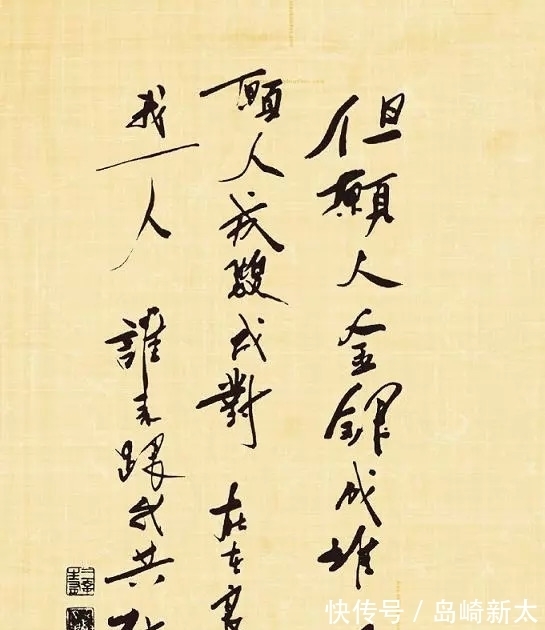 但願人金銀成堆
願人成雙成對 在在富
我一人 誰來跟我共
快传号 / 岛崎新太